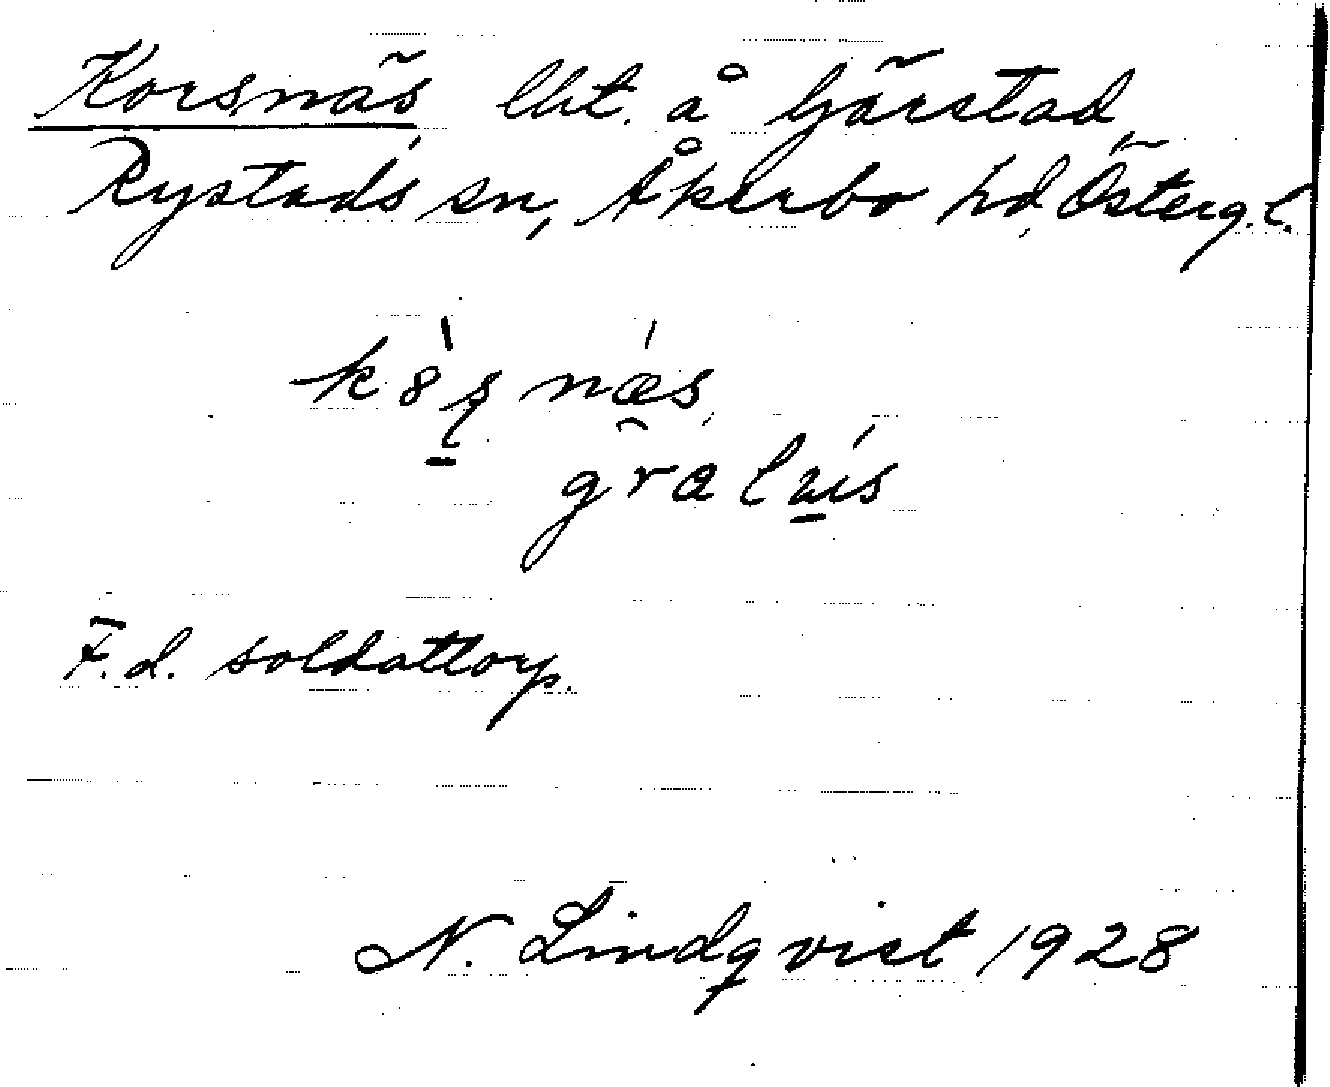 Korsnäs lht. å Gärstad,
Rystads sn, Åkerbo hd, Österg. l.
kȯ̀ʂnæs
gravis
F.d. soldattorp.
N. Lindqvist 1928